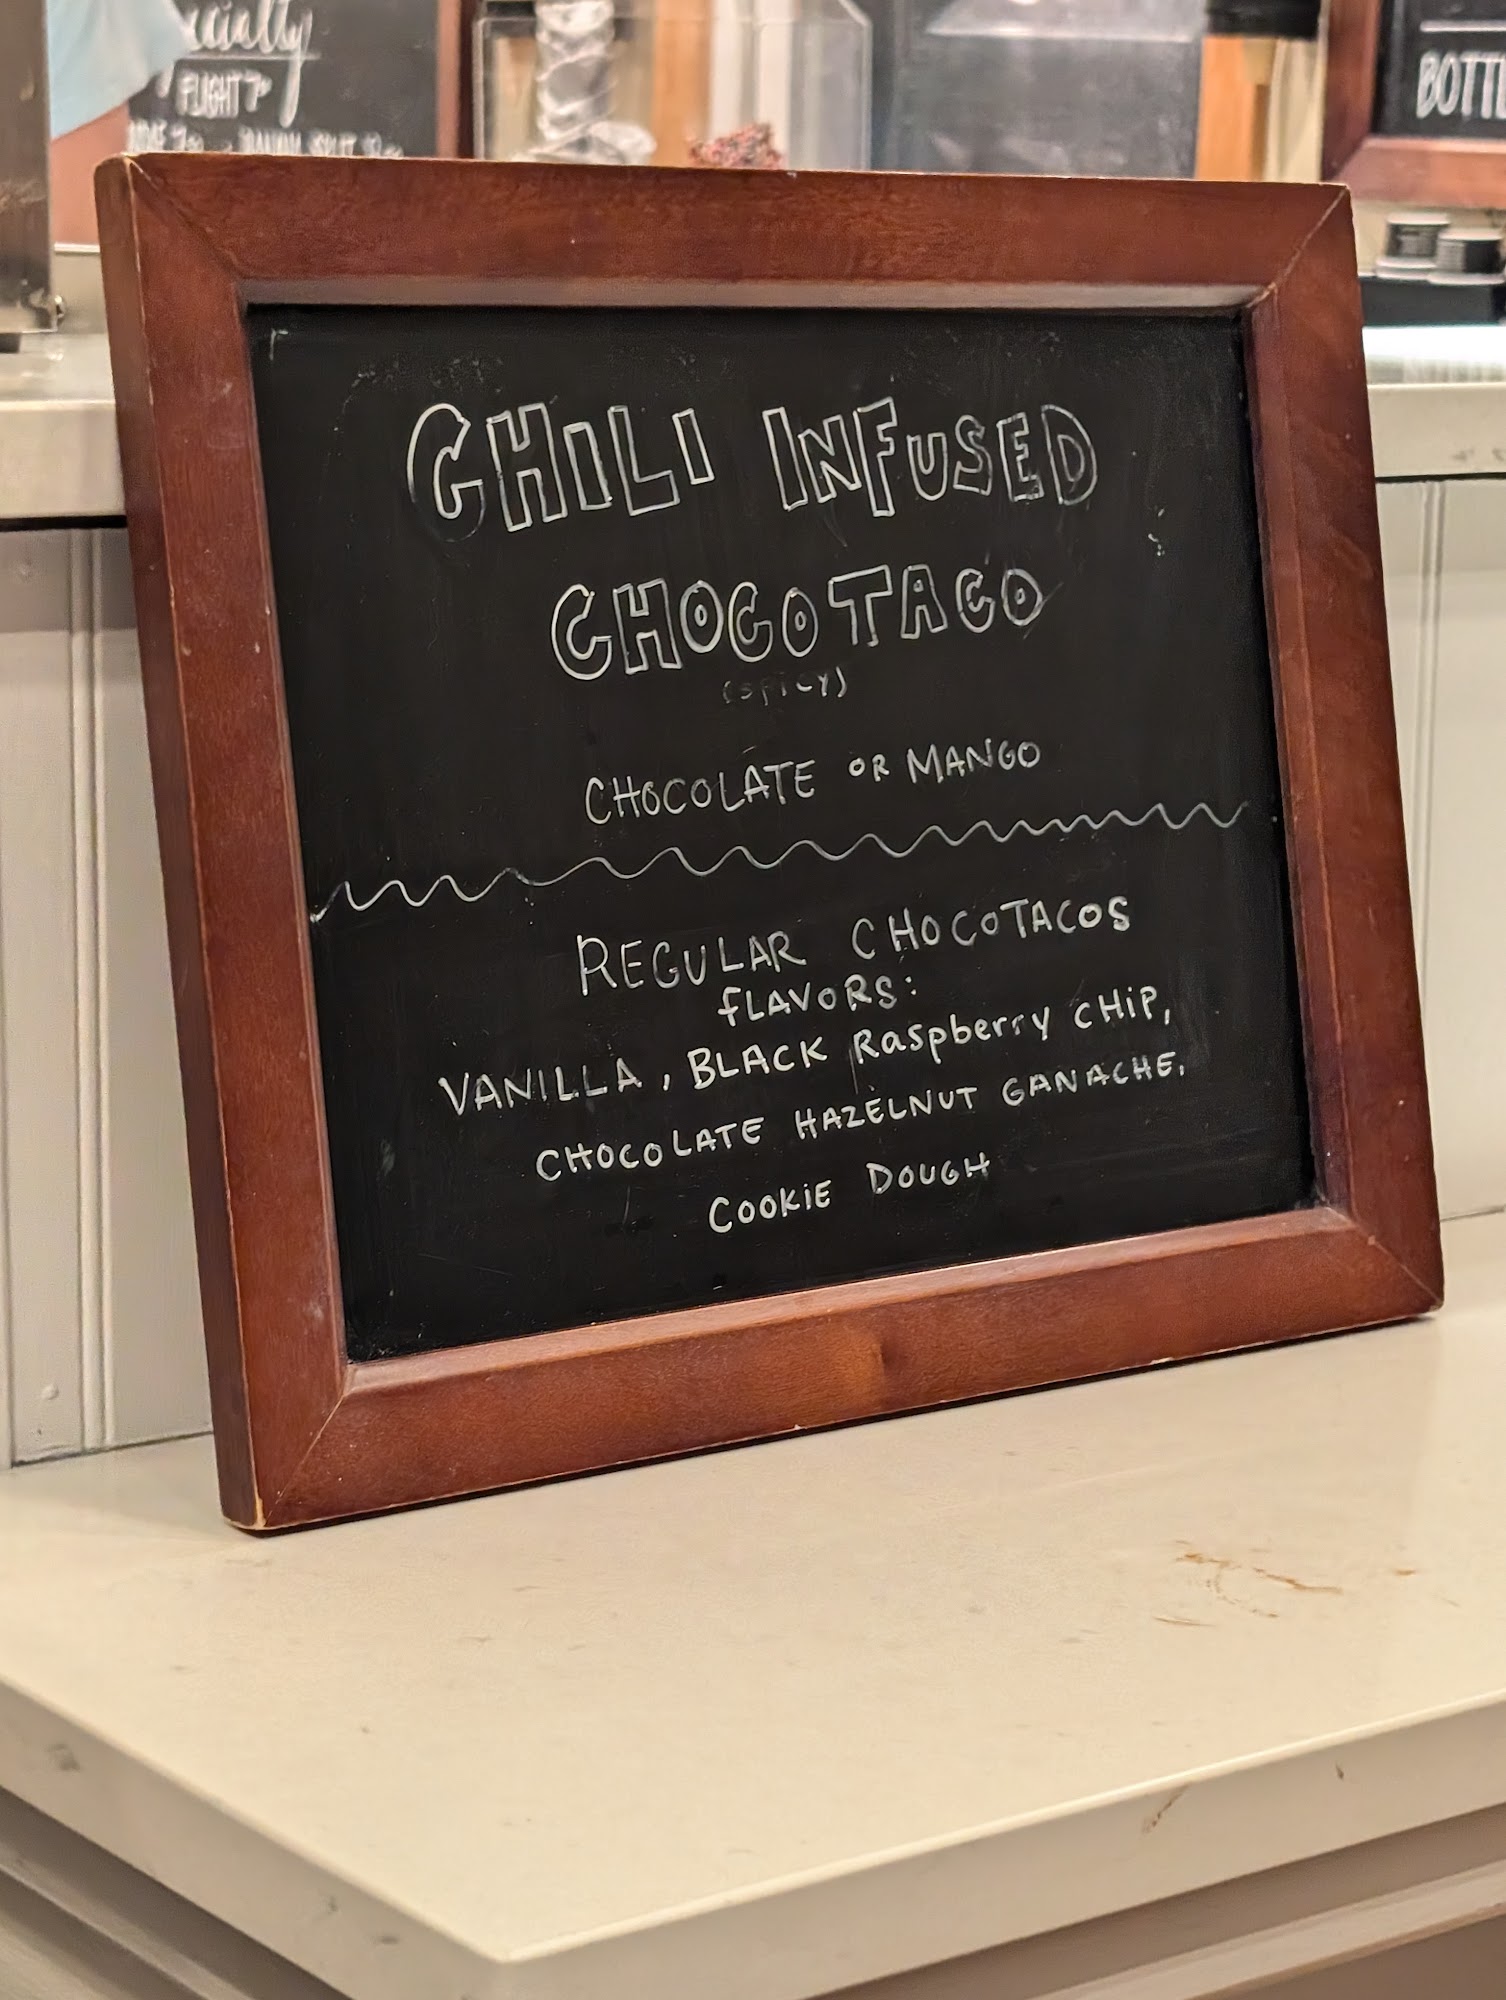 Specialty
FLIGHT 7⁰⁰
BOTTL
CHILI INFUSED
CHOCOTACO
(SPICY)
CHOCOLATE OR MANGO
REGULAR CHOCOTACOS
FLAVORS:
VANILLA, BLACK Raspberry CHIP,
CHOCOLATE HAZELNUT GANACHE,
COOKIE DOUGH